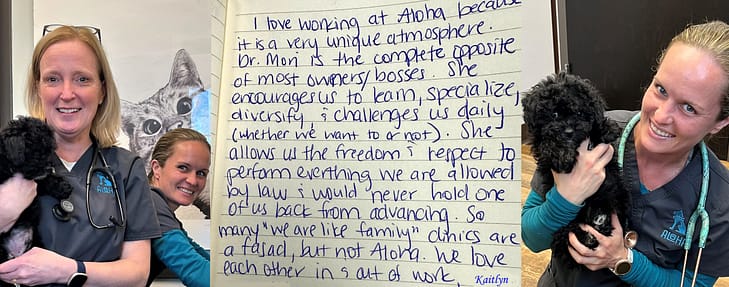 I love working at Aloha because
it is a very unique atmosphere.
Dr. Mori is the complete opposite
of most owners/bosses. She
encourages us to learn, specialize,
diversify, & challenges us daily
(whether we want to or not). She
allows us the freedom & respect to
perform everthing we are allowed
by law & would never hold one
of us back from advancing. So
many "we are like family" clinics are
a fasad, but not Aloha. We love
each other in & out of work.
Kaitlyn
ALOHA